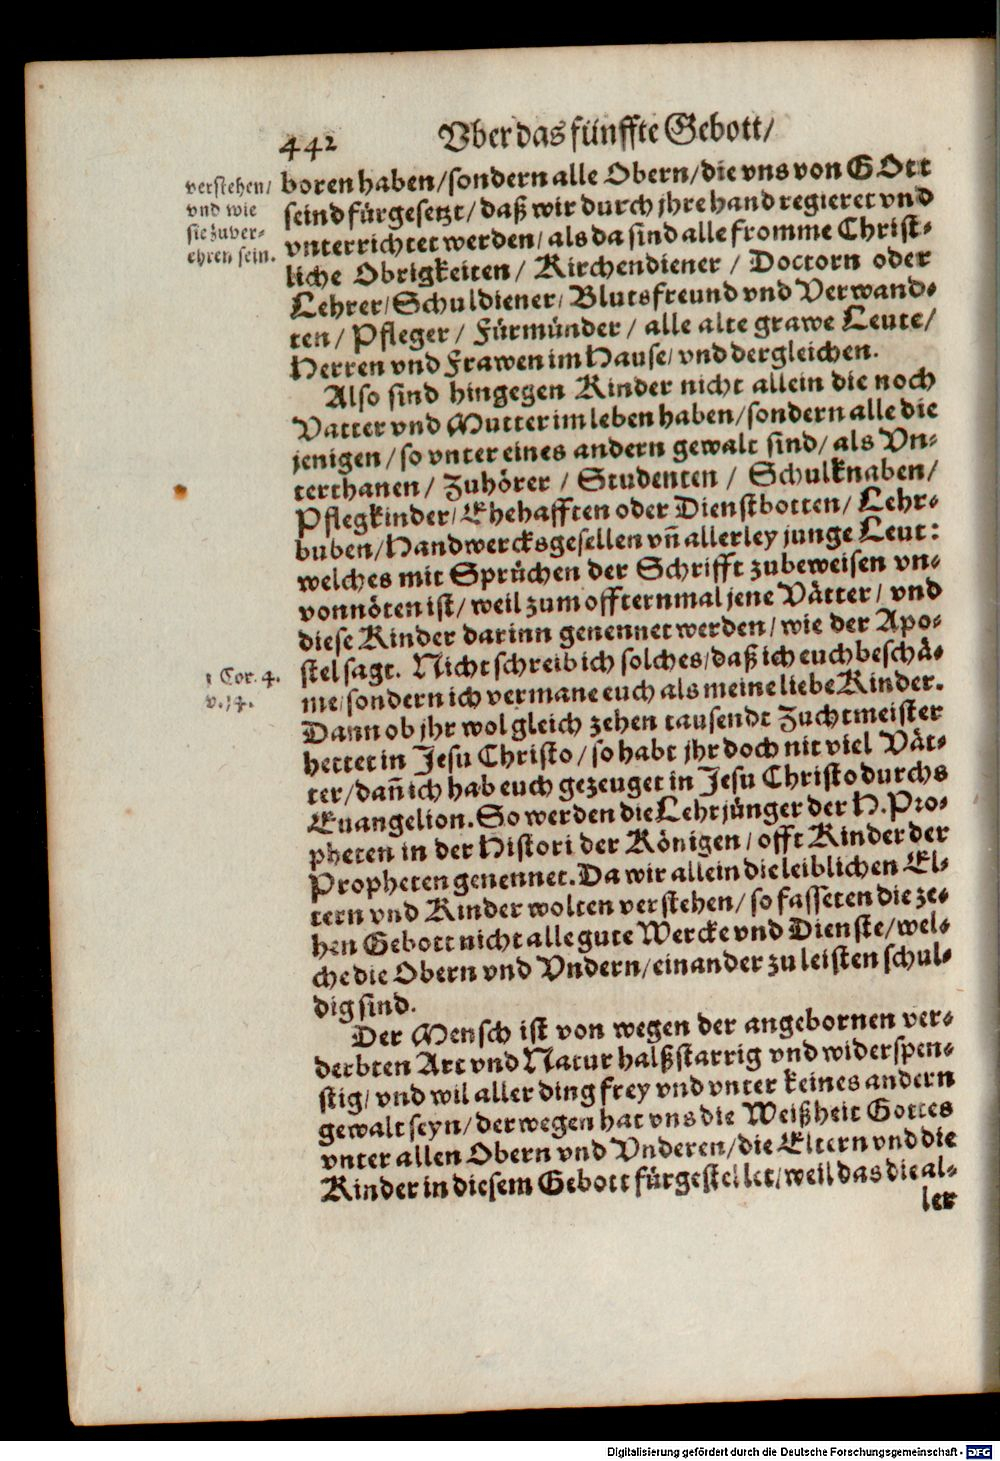 442 Vber das fünffte Gebott/
verstehen/
vnd wie
sie zuver-
ehren sein.
boren haben/sondern alle Obern/die vns von GOtt
seind fürgesetzt/daß wir durch jhre hand regieret vnd
vnterrichtet werden/als da sind alle fromme Christ-
liche Obrigkeiten/ Kirchendiener / Doctorn oder
Lehrer/Schuldiener/Blutsfreund vnd Verwand-
ten/ Pfleger/ Fürmünder/ alle alte grawe Leute/
Herren vnd Frawen im Hause/vnd dergleichen.
Also sind hingegen Kinder nicht allein die noch
Vatter vnd Mutter im leben haben/sondern alle die
jenigen/so vnter eines andern gewalt sind/als Vn-
terthanen/ Zuhörer / Studenten / Schulknaben/
Pflegkinder/Ehehafften oder Dienstbotten/ Lehr-
buben/Handwercksgesellen vñ allerley junge Leut:
welches mit Sprüchen der Schrifft zubeweisen vn-
vonnöten ist/weil zum offternmal jene Vätter/ vnd
diese Kinder darinn genennet werden/wie der Apo-
1 Cor. 4.
v. 14.
stel sagt. Nicht schreib ich solches/daß ich euch beschä-
me/sondern ich vermane euch als meine liebe Kinder.
Dann ob jhr wol gleich zehen tausendt Zuchtmeister
hettet in Jesu Christo/so habt jhr doch nit viel Vät-
ter/dañ ich hab euch gezeuget in Jesu Christo durchs
Euangelion. So werden die Lehrjünger der H. Pro-
pheten in der Histori der Königen/offt Kinder der
Propheten genennet. Da wir allein die leiblichen El-
tern vnd Kinder wolten verstehen/so fasseten die ze-
hen Gebott nicht alle gute Wercke vnd Dienste/wel-
che die Obern vnd Vndern/einander zu leisten schul-
dig sind.
Der Mensch ist von wegen der angebornen ver-
derbten Art vnd Natur halßstarrig vnd widerspen-
stig/vnd wil aller ding frey vnd vnter keines andern
gewalt seyn/derwegen hat vns die Weißheit Gottes
vnter allen Obern vnd Vnderen/die Eltern vnd die
Kinder in diesem Gebott fürgestellet/weil das die al-
ler
Digitalisierung gefördert durch die Deutsche Forschungsgemeinschaft - DFG